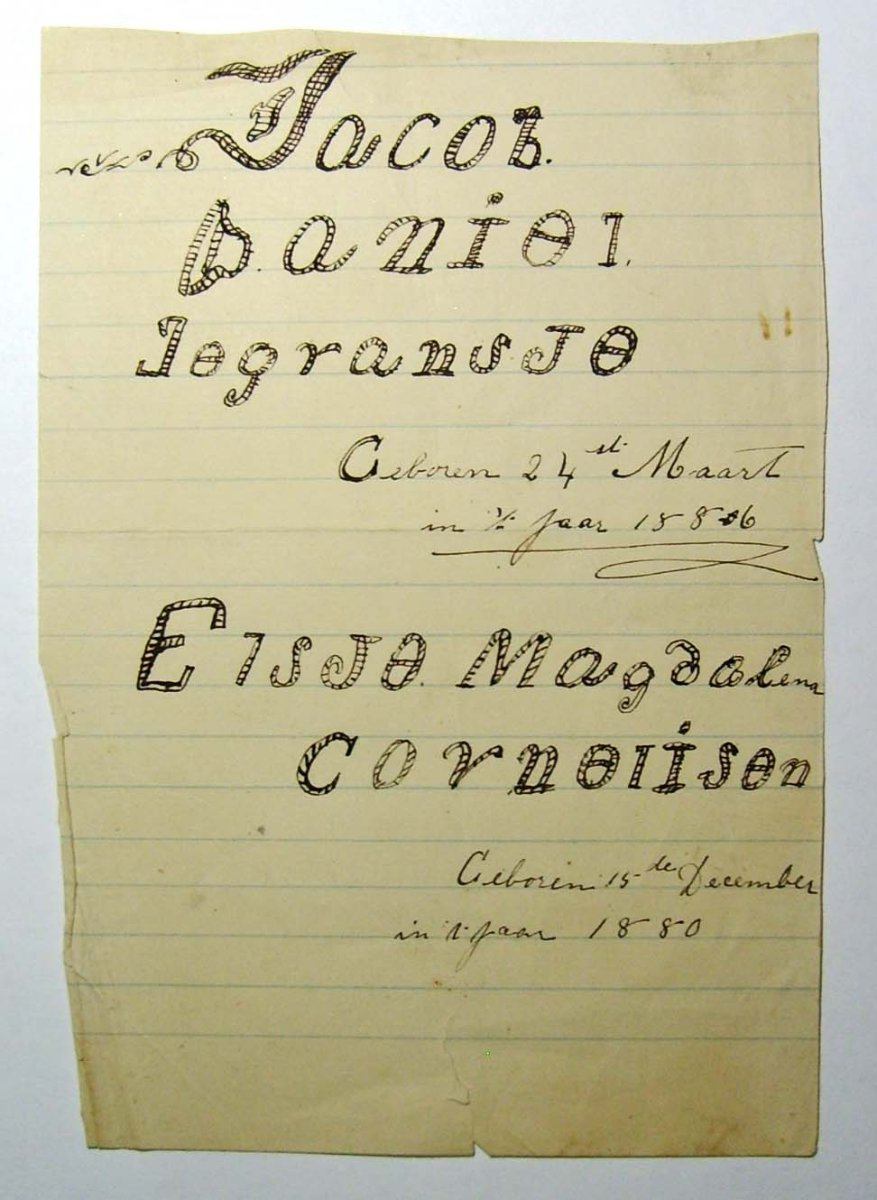 Jacob.
Daniel.
legransje
Geboren 24st Maart
in 't jaar 1886
Elsje. Magdalena
Cornelisen
Geboren 15de December
in 't jaar 1880